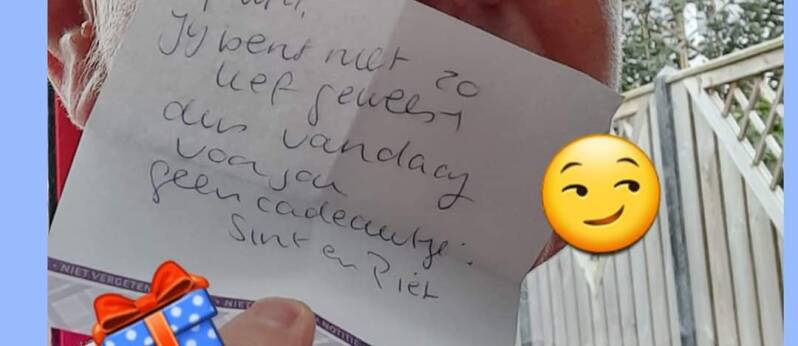 Jy bent niet zo
lief geweest
dus vandaag
voor jou
geen cadeautje.
Sint en Piet
NIET VERGETEN
NOTITIE